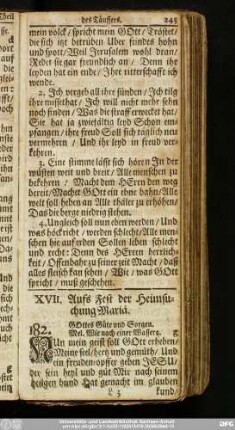 des Täuffers. 245
mein volck / spricht mein GOtt / Tröstet /
die sich itzt betrüben Uber feindes hohn
und spott / Weil Jerusalem wohl dran /
Redet sie gar freundlich an / Denn ihr
leyden hat ein ende / Ihre ritterschafft ich
wende.
2. Ich vergeb all ihre sünden / Ich tilg
ihre missethat / Ich will nicht mehr sehn
noch finden / Was die straff erwecket hat /
Sie hat ja zwiefältig leyd Schon em-
pfangen / ihre freud Soll sich täglich neu
vermehren / Und ihr leyd in freud ver-
kehren.
3. Eine stimme lässt sich hören In der
wüsten weit und breit / Alle menschen zu
bekehren / Macht dem HErrn den weg
bereit / Machet GOtt ein ebne bahn / Alle
welt soll heben an Alle thäler zu erhöhen /
Das die berge niedrig stehen.
4. Ungleich soll nun eben werden / Und
was höckricht / werden schlecht / Alle men-
schen hie auf erden Sollen leben schlecht
und recht / Denn des HErren herrlich-
keit / Offenbahr zu seiner zeit Macht / daß
alles fleisch kan sehen / Wie / was GOtt
spricht / muß geschehen.
XVII. Aufs Fest der Heimsu-
chung Mariä.
GOttes Güte und Sorgen.
182. Mel. Wie nach einer Wasserq.
NUn mein geist soll GOtt erheben /
Meine seel / herz und gemüth / Und
ein freudenopffer geben JESU /
der sein heyl und güt Mir nach seinem
heilgen bund Hat gemacht im glauben
L 3 kund /